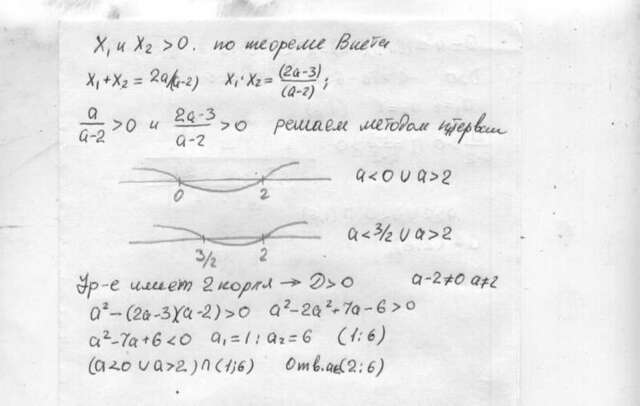 X₁ и X₂ >0. по теореме Виета
X₁+X₂ = 2a/(a-2) X₁·X₂ = (2a-3)/(a-2);
a/(a-2) >0 и (2a-3)/(a-2) >0 решаем методом интервал
0 2 a<0 ∪ a>2
3/2 2 a<3/2 ∪ a>2
Ур-е имеет 2 корня → D>0 a-2≠0 a≠2
a²-(2a-3)(a-2)>0 a²-2a²+7a-6>0
a²-7a+6<0 a₁=1; a₂=6 (1;6)
(a<0 ∪ a>2) ∩ (1;6) Отв. a∈(2;6)